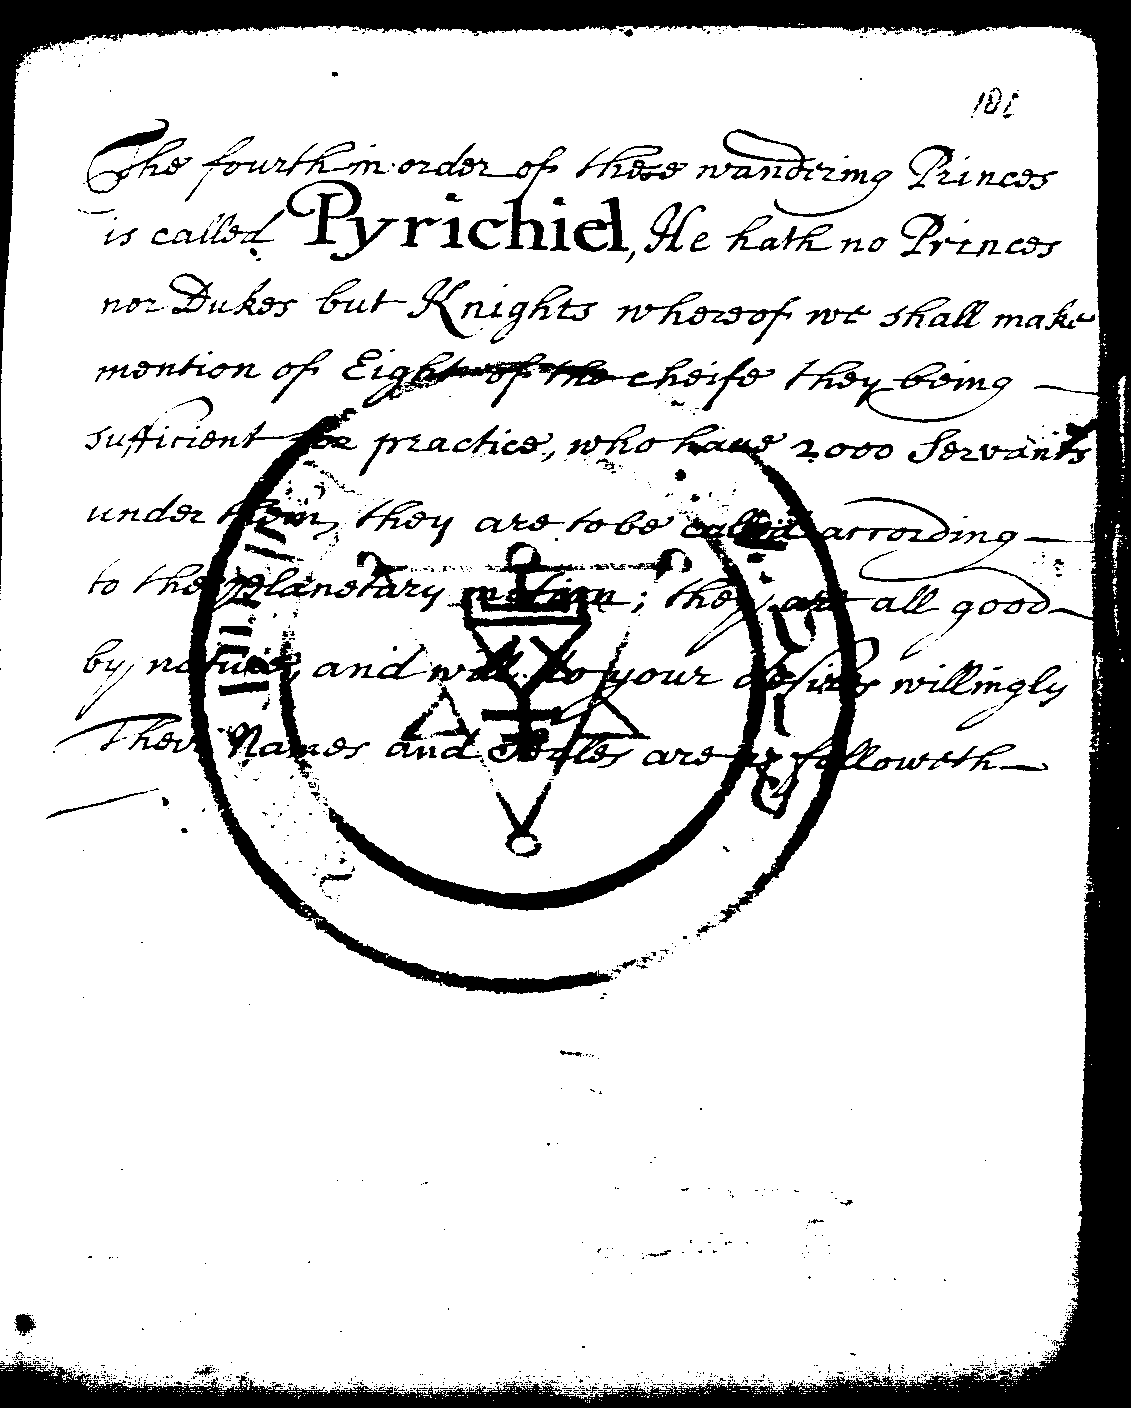 181
The fourth in order of these wandering Princes
is called Pyrichiel, He hath no Princes
nor Dukes but Knights whereof we shall make
mention of Eight of the cheife they being
sufficient for practice, who have 2000 Servants
under them, they are to be called according
to the planetary motion; they are all good
by nature, and will do your desires willingly
Their Names and Seales are as followeth